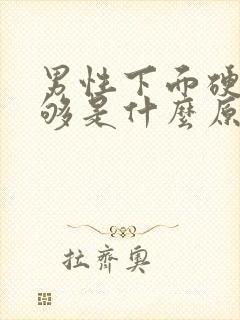 男性下而硬
够是什麼原
拉齊奧